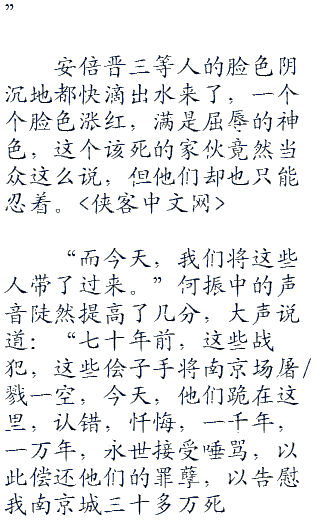 ”
安倍晋三等人的脸色阴
沉地都快滴出水来了，一个
个脸色涨红，满是屈辱的神
色，这个该死的家伙竟然当
众这么说，但他们却也只能
忍着。<侠客中文网>
“而今天，我们将这些
人带了过来。”何振中的声
音陡然提高了几分，大声说
道：“七十年前，这些战
犯，这些侩子手将南京场屠/
戮一空，今天，他们跪在这
里，认错，忏悔，一千年，
一万年，永世接受唾骂，以
此偿还他们的罪孽，以告慰
我南京城三十多万死